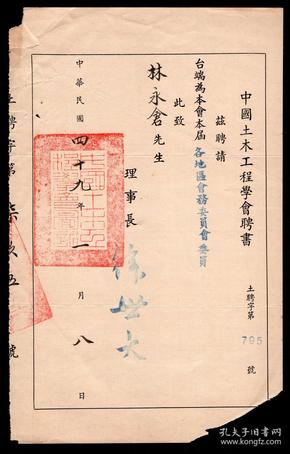 中國土木工程學會聘書
土聘字第 795 號
茲聘請
台端為本會本屆各地區會務委員會委員
此致
林永倉先生
理事長 徐世大
中華民國四十九年一月八日
土聘字第柒玖伍號
孔夫子旧书网